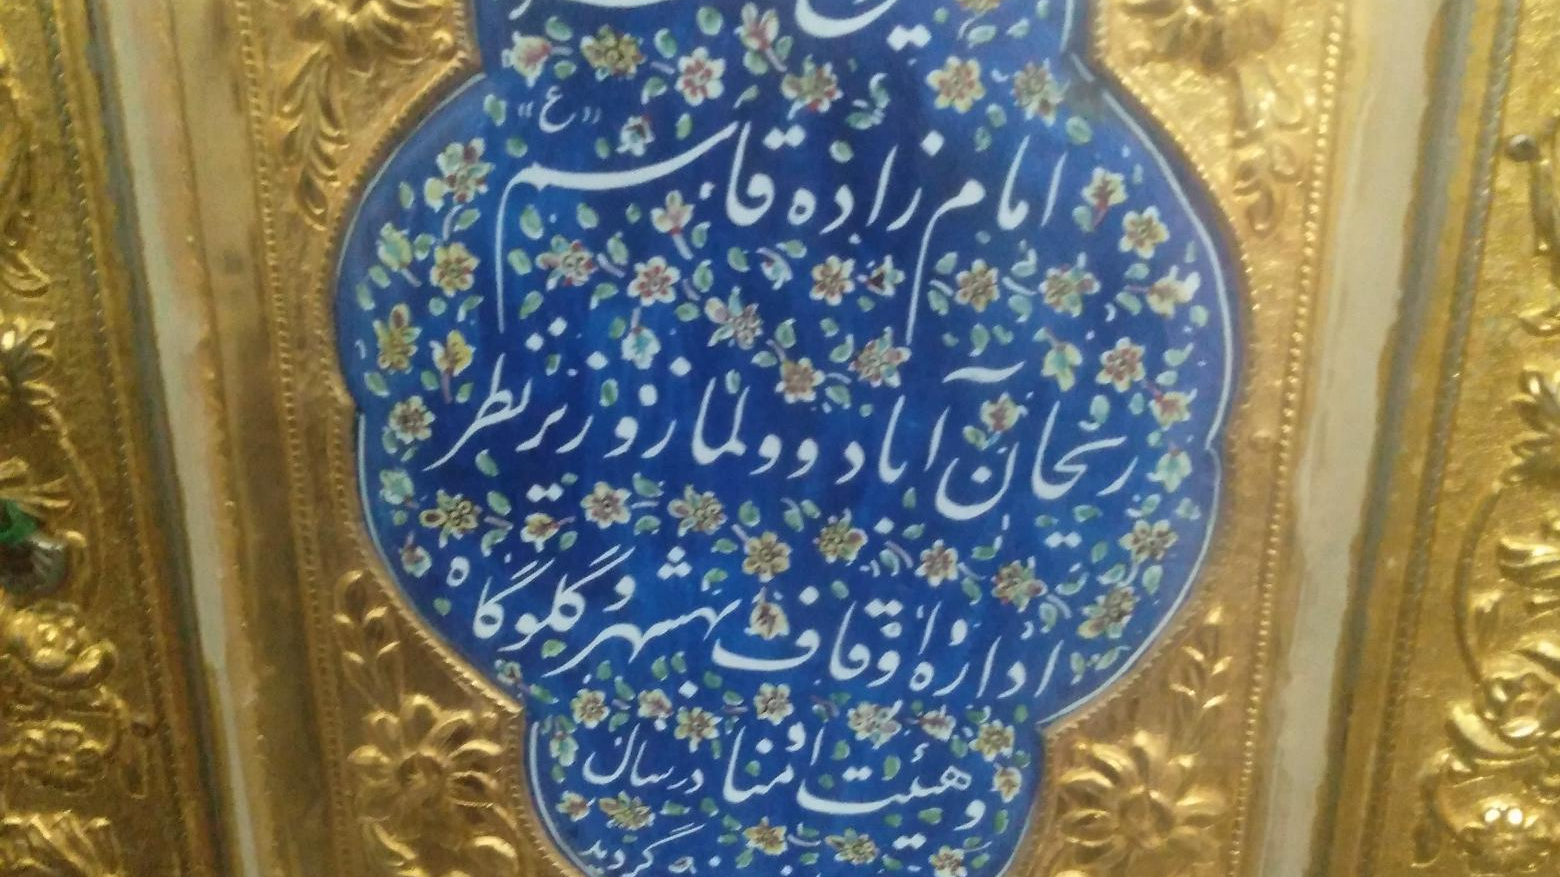 امام زاده قاسم «ع»
ریحان آباد و ولمازو زیر نظر
اداره اوقاف بهشهر و گلوگاه
و هیئت امنا در سال
گردید